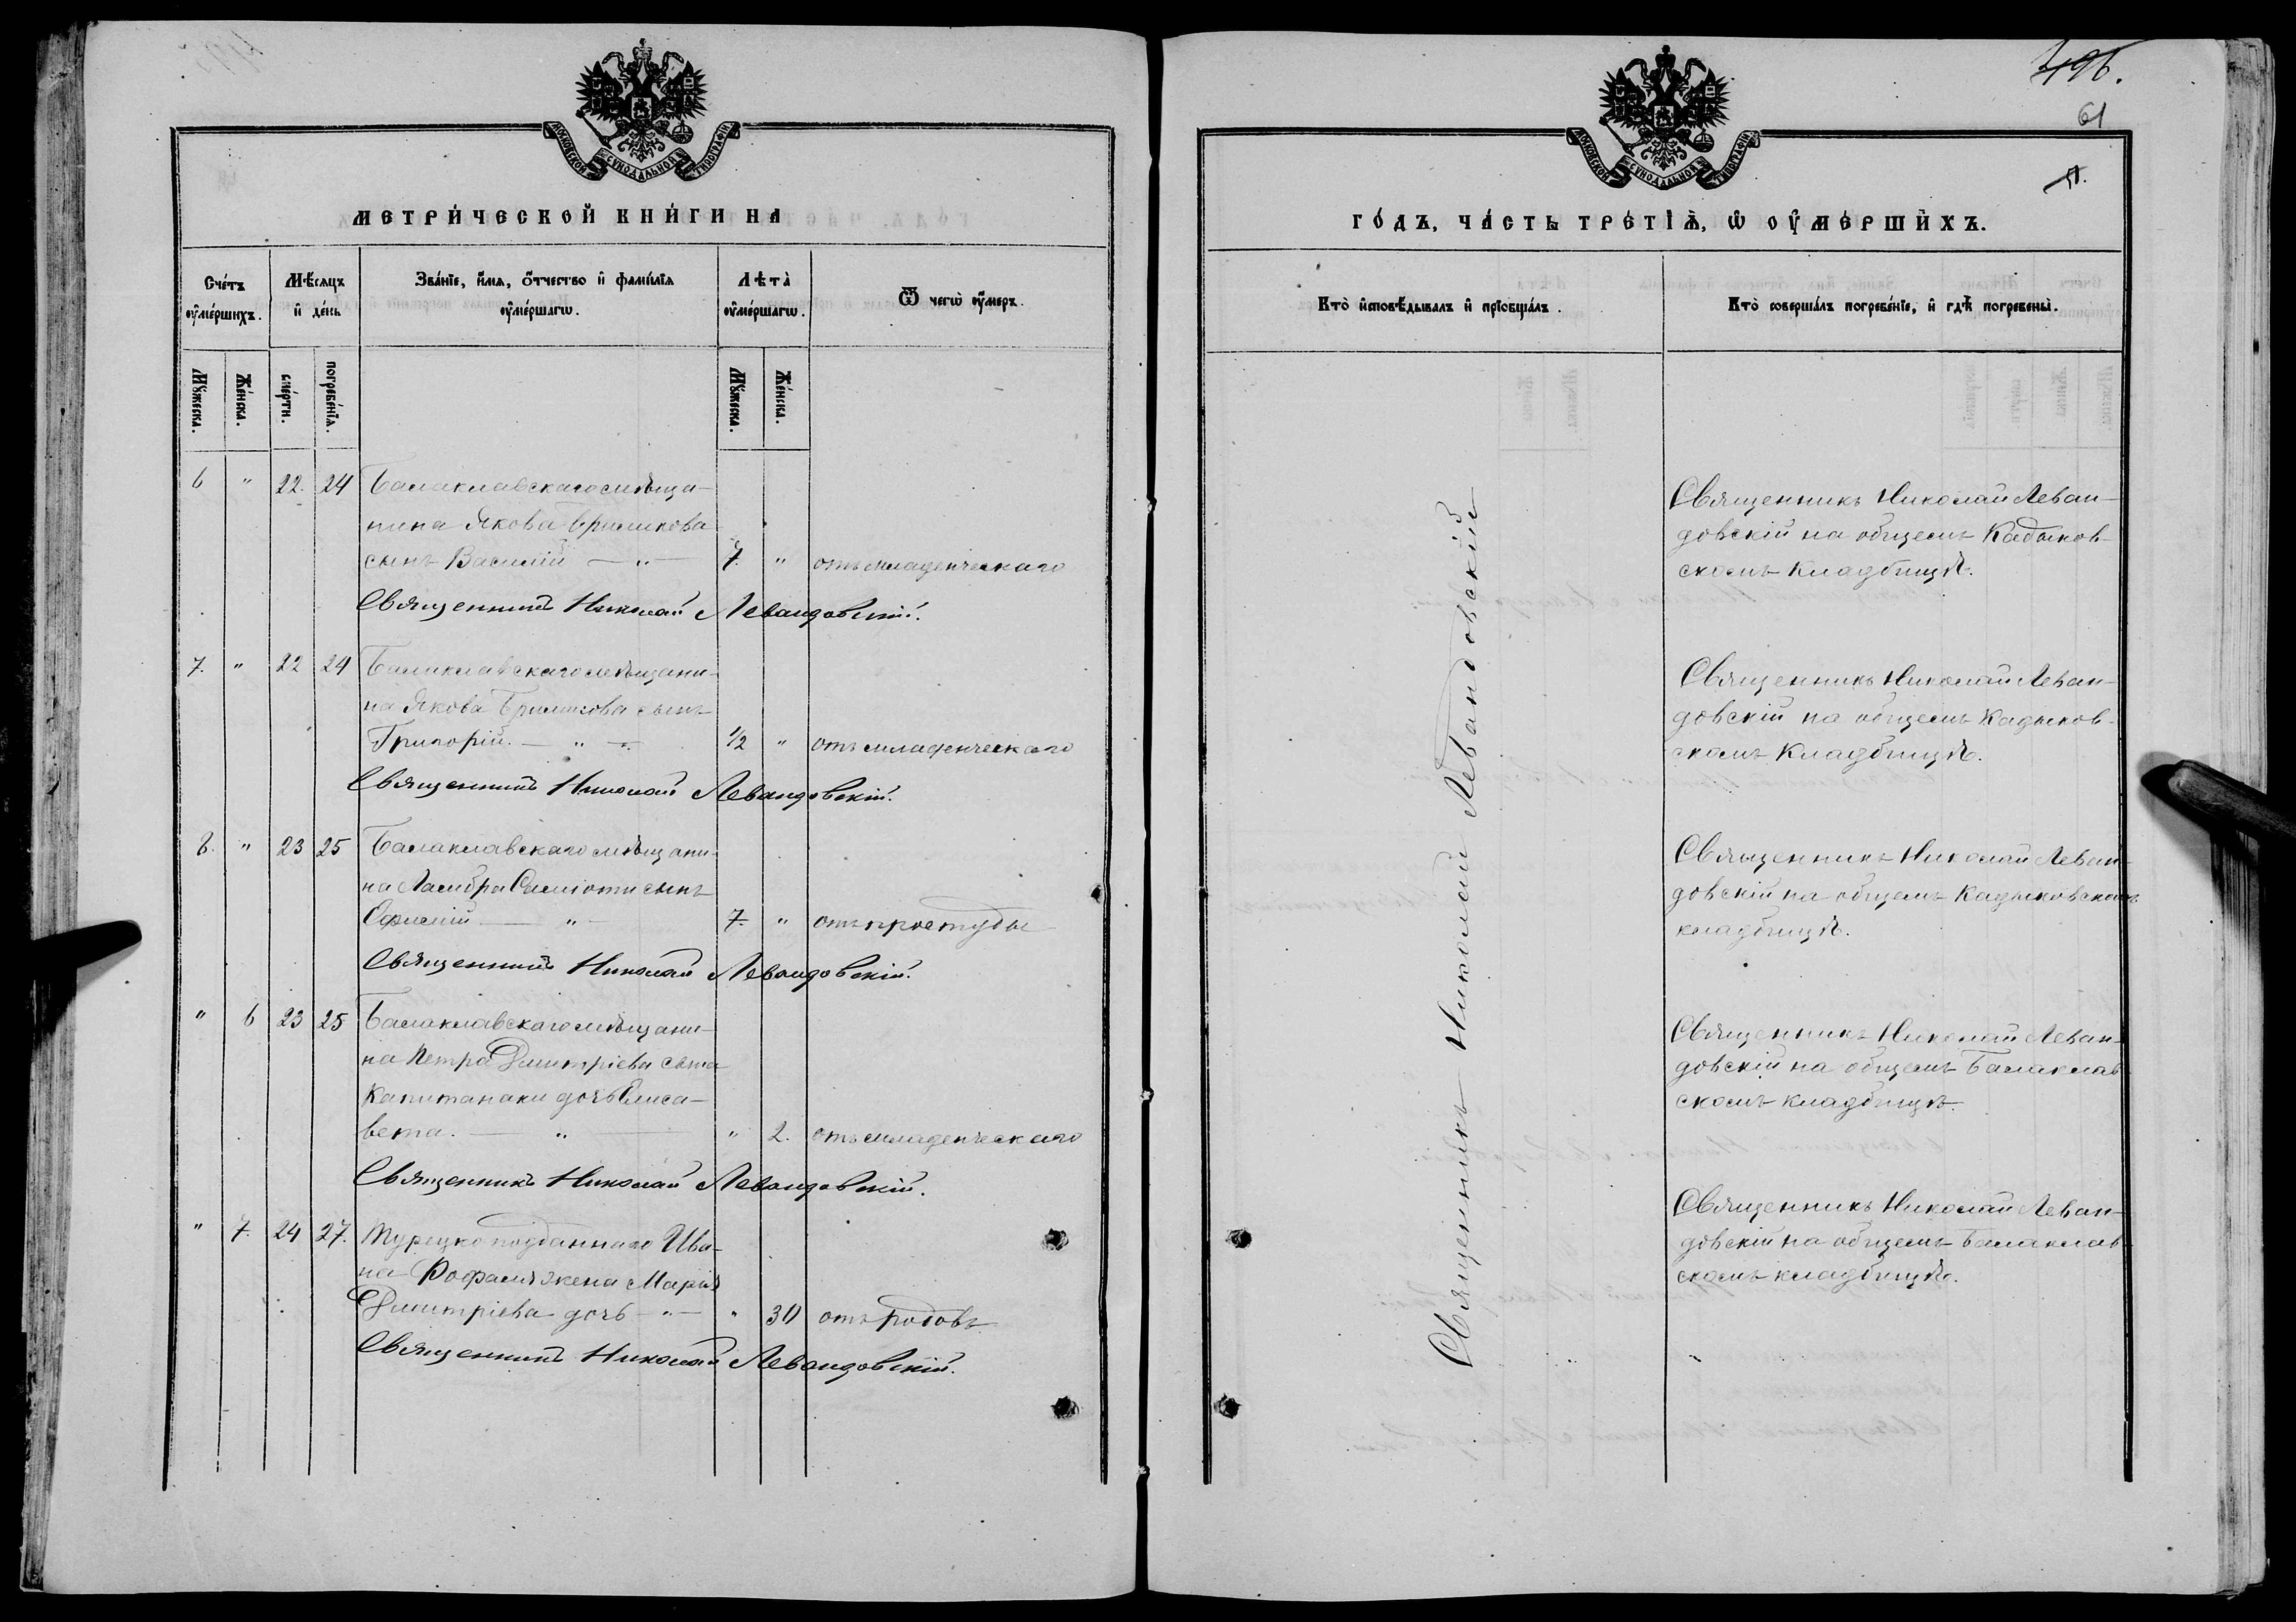 496.
61
МОСКОВСКОЙ СѴНОДАЛЬНОЙ ТИПОГРАФІИ
МЕТРИ́ЧЕСКОЙ КНИ́ГИ НА
Сче́тъ ᲂумершихъ.
Мѣ́сяцъ и де́нь
Зва́нїе, и́мѧ, ѻ́тчество и фами́лїѧ ᲂуме́ршагѡ.
Лѣта̀ ᲂуме́ршагѡ.
Ѿ чегѡ̀ ᲂу́меръ.
Мꙋ́жеска.
Же́нска.
сме́рти.
погребе́нїѧ.
Мꙋ́жеска.
Же́нска.
6 " 22. 24 Балаклавскаго мѣща-
нина Якова
сынъ Василій — " — 7. " отъ младенческаго
Священникъ Николай Левандовскій.
7. " 22 24 Балаклавскаго мѣщани-
на Якова сынъ
Григорій. — " — 1/2 " отъ младенческаго
Священникъ Николай Левандовскій.
8. " 23 25 Балаклавскаго мѣщани-
на Ламбра сынъ
— " — 7. " отъ простуды
Священникъ Николай Левандовскій.
" 6 23 25 Балаклавскаго мѣщани-
на Петра Дмитріева сына
Капитанаки дочь Елиса-
вета. — " — " 2. отъ младенческаго
Священникъ Николай Левандовскій.
" 7. 24 27. Турецкоподданнаго Ива-
на жена Марія
Дмитріева дочь — " — " 30 отъ родовъ
Священникъ Николай Левандовскій.
МОСКОВСКОЙ СѴНОДАЛЬНОЙ ТИПОГРАФІИ
ГО́ДЪ, ЧА́СТЬ ТРЕ́ТІѦ, Ѡ ОУМЕ́РШИХЪ.
Кто̀ и҆сповѣ́дывалъ и҆ прїобща́лъ.
Кто̀ соверша́лъ погребе́нїе, и҆ гдѣ̀ погребены̀.
Священникъ Николай Левандовскій
Священникъ Николай Леван-
довскій на общемъ Кадыков-
скомъ Кладбищѣ.
Священникъ Николай Леван-
довскій на общемъ Кадыков-
скомъ Кладбищѣ.
Священникъ Николай Леван-
довскій на общемъ Кадыковскомъ
кладбищѣ.
Священникъ Николай Леван-
довскій на общемъ Балаклав
скомъ кладбищѣ.
Священникъ Николай Леван-
довскій на общемъ Балаклав
скомъ кладбищѣ.